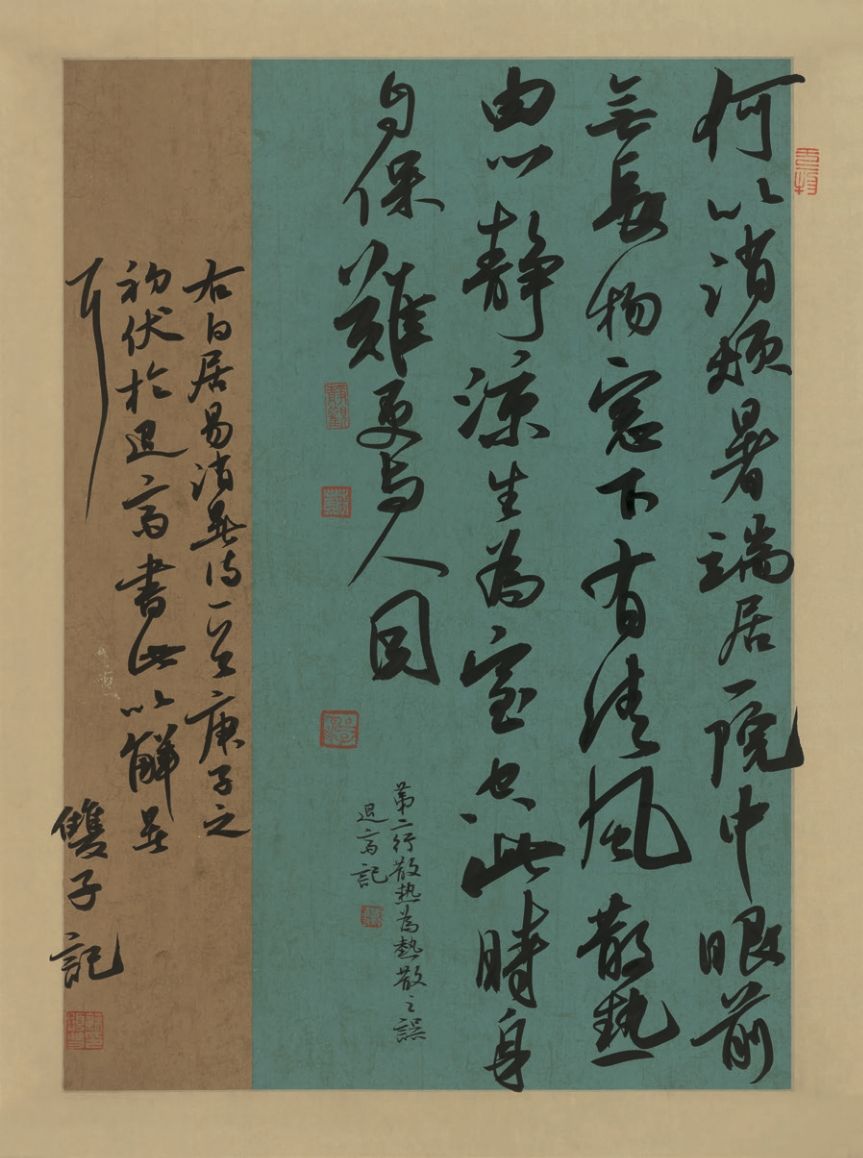 何以消烦暑端居一院中眼前
無長物窓下有清風散熱
由心静凉生為室空此時身
自保難更与人同
第二行散熱為熱散之誤
退高記
右白居易消暑诗一首庚子之
初伏於退高書此以解暑
耳
雙子記